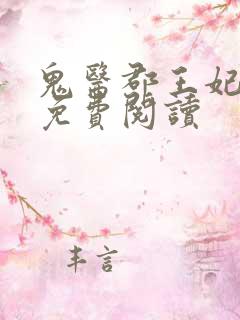 鬼醫郡王妃
免費閱讀
丰言